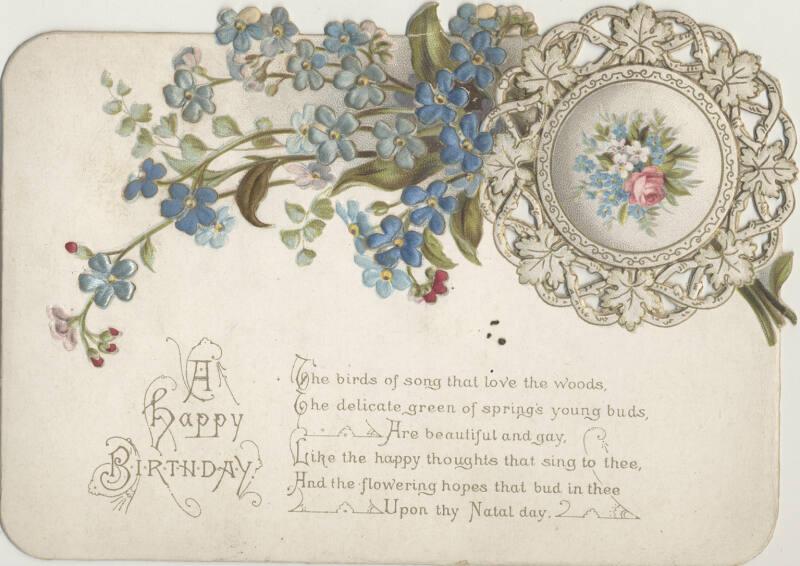 A
Happy
BIRTHDAY
The birds of song that love the woods,
The delicate green of spring's young buds,
Are beautiful and gay,
Like the happy thoughts that sing to thee,
And the flowering hopes that bud in thee
Upon thy Natal day.